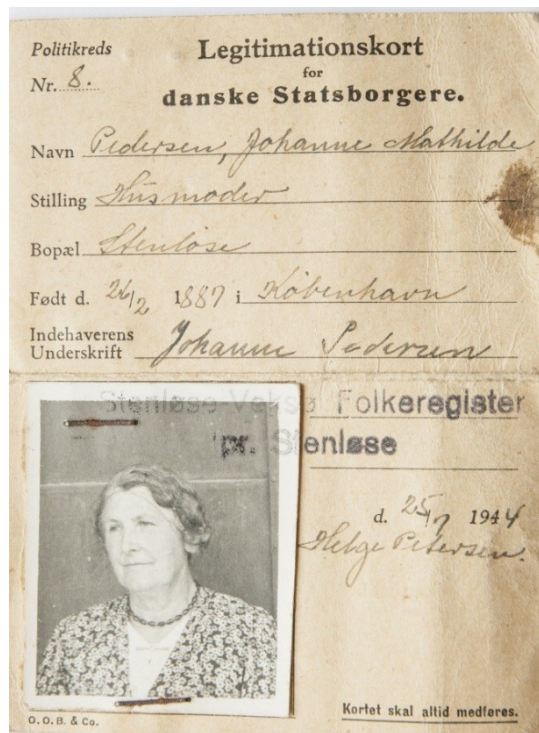 Politikreds
Nr. 8.
Legitimationskort
for
danske Statsborgere.
Navn Pedersen, Johanne Mathilde
Stilling Husmoder
Bopæl Stenløse
Født d. 26/2 1887 i København
Indehaverens
Underskrift Johanne Pedersen
Stenløse-Veksø Folkeregister
pr. Stenløse
d. 25/7 1944
Helge Petersen.
O.O.B. & Co.
Kortet skal altid medføres.